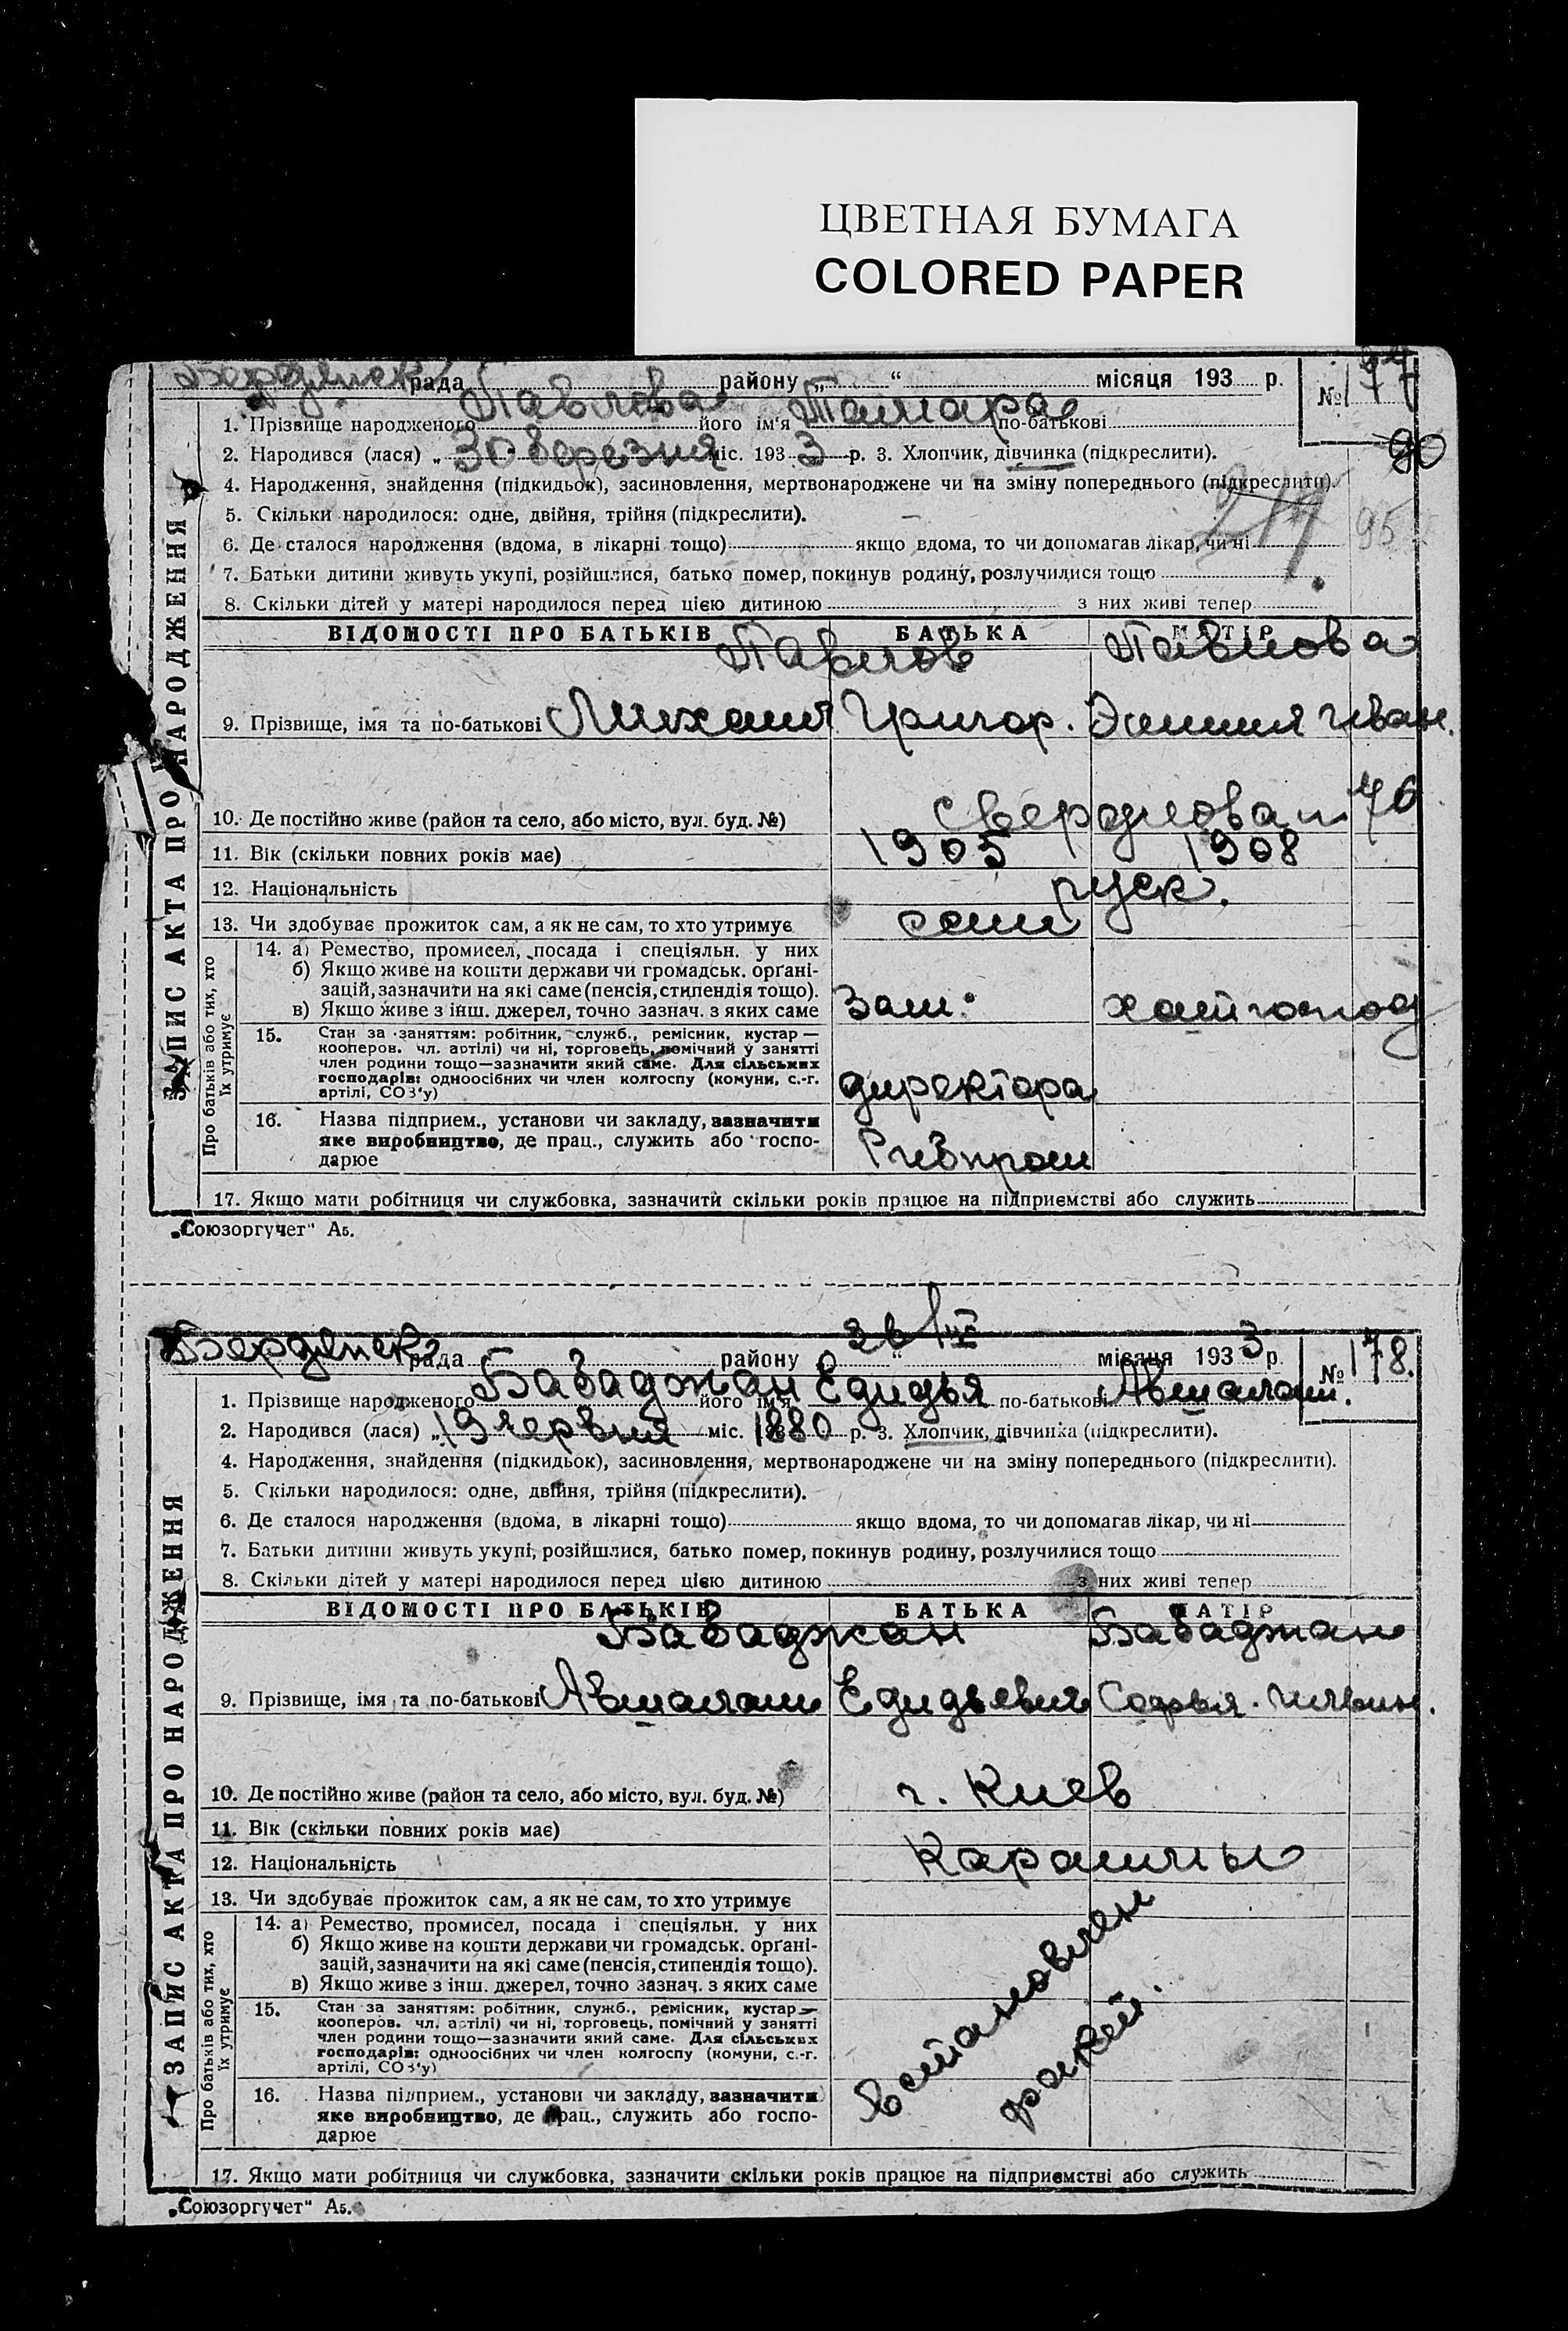 ЦВЕТНАЯ БУМАГА
COLORED PAPER
Бердянск рада району „ “ місяця 193 р. № 177
1. Прізвище народженого Павлова його ім'я Тамара по-батькові
90
2. Народився (лася) „ 30 березня міс. 193 3 р. 3. Хлопчик, дівчинка (підкреслити).
4. Народження, знайдення (підкидьок), засиновлення, мертвонароджене чи на зміну попереднього (підкреслити).
5. Скільки народилося: одне, двійня, трійня (підкреслити).
95
6. Де сталося народження (вдома, в лікарні тощо) якщо вдома, то чи допомагав лікар, чи ні
7. Батьки дитини живуть укупі, розійшлися, батько помер, покинув родину, розлучилися тощо
8. Скільки дітей у матері народилося перед цією дитиною з них живі тепер
ВІДОМОСТІ ПРО БАТЬКІВ БАТЬКА МАТІР
Павлов Павлова
9. Прізвище, імя та по-батькові Михаил Григор. Иван.
10. Де постійно живе (район та село, або місто, вул. буд. №) Свердлова 76
11. Вік (скільки повних років має) 1905 1908
12. Національність руск.
13. Чи здобуває прожиток сам, а як не сам, то хто утримує сам
14. а) Ремество, промисел, посада і спеціяльн. у них
б) Якщо живе на кошти держави чи громадськ. орґані-
зацій, зазначити на які саме (пенсія, стипендія тощо).
в) Якщо живе з інш. джерел, точно зазнач. з яких саме Зам. хатн господ
15. Стан за заняттям: робітник, служб., ремісник, кустар —
кооперов. чл. артілі) чи ні, торговець, помічний у занятті
член родини тощо—зазначити який саме. Для сільських
господарів: одноосібних чи член колгоспу (комуни, с.-г. директора
артілі, СОЗ'у)
16. Назва підприєм., установи чи закладу, зазначити
яке виробництво, де прац., служить або госпо-
дарюе
17. Якщо мати робітниця чи службовка, зазначити скільки років працює на підприємстві або служить
ЗАПИС АКТА ПРО НАРОДЖЕННЯ
Про батьків або тих, хто
їх утримує
„Союзоргучет" А5.
Бердянск рада району „ “ місяця 193 3 р. № 178.
1. Прізвище народженого Бабаджан його ім'я Едидья по-батькові Авшалом.
2. Народився (лася) „ 19 червня міс. 1880 р. 3. Хлопчик, дівчинка (підкреслити).
4. Народження, знайдення (підкидьок), засиновлення, мертвонароджене чи на зміну попереднього (підкреслити).
5. Скільки народилося: одне, двійня, трійня (підкреслити).
6. Де сталося народження (вдома, в лікарні тощо) якщо вдома, то чи допомагав лікар, чи ні
7. Батьки дитини живуть укупі, розійшлися, батько помер, покинув родину, розлучилися тощо
8. Скільки дітей у матері народилося перед цією дитиною з них живі тепер
ВІДОМОСТІ ПРО БАТЬКІВ БАТЬКА МАТІР
Бабаджан Бабаджан
9. Прізвище, імя та по-батькові Авшалом Едидьевич Софья
10. Де постійно живе (район та село, або місто, вул. буд. №) г. Киев
11. Вік (скільки повних років має)
12. Національність Караимы
13. Чи здобуває прожиток сам, а як не сам, то хто утримує
14. а) Ремество, промисел, посада і спеціяльн. у них
б) Якщо живе на кошти держави чи громадськ. орґані-
зацій, зазначити на які саме (пенсія, стипендія тощо).
в) Якщо живе з інш. джерел, точно зазнач. з яких саме
15. Стан за заняттям: робітник, служб., ремісник, кустар —
кооперов. чл. артілі) чи ні, торговець, помічний у занятті
член родини тощо—зазначити який саме. Для сільських
господарів: одноосібних чи член колгоспу (комуни, с.-г.
артілі, СОЗ'у)
16. Назва підприєм., установи чи закладу, зазначити
яке виробництво, де прац., служить або госпо-
дарюе
17. Якщо мати робітниця чи службовка, зазначити скільки років працює на підприємстві або служить
ЗАПИС АКТА ПРО НАРОДЖЕННЯ
Про батьків або тих, хто
їх утримує
„Союзоргучет" А5.